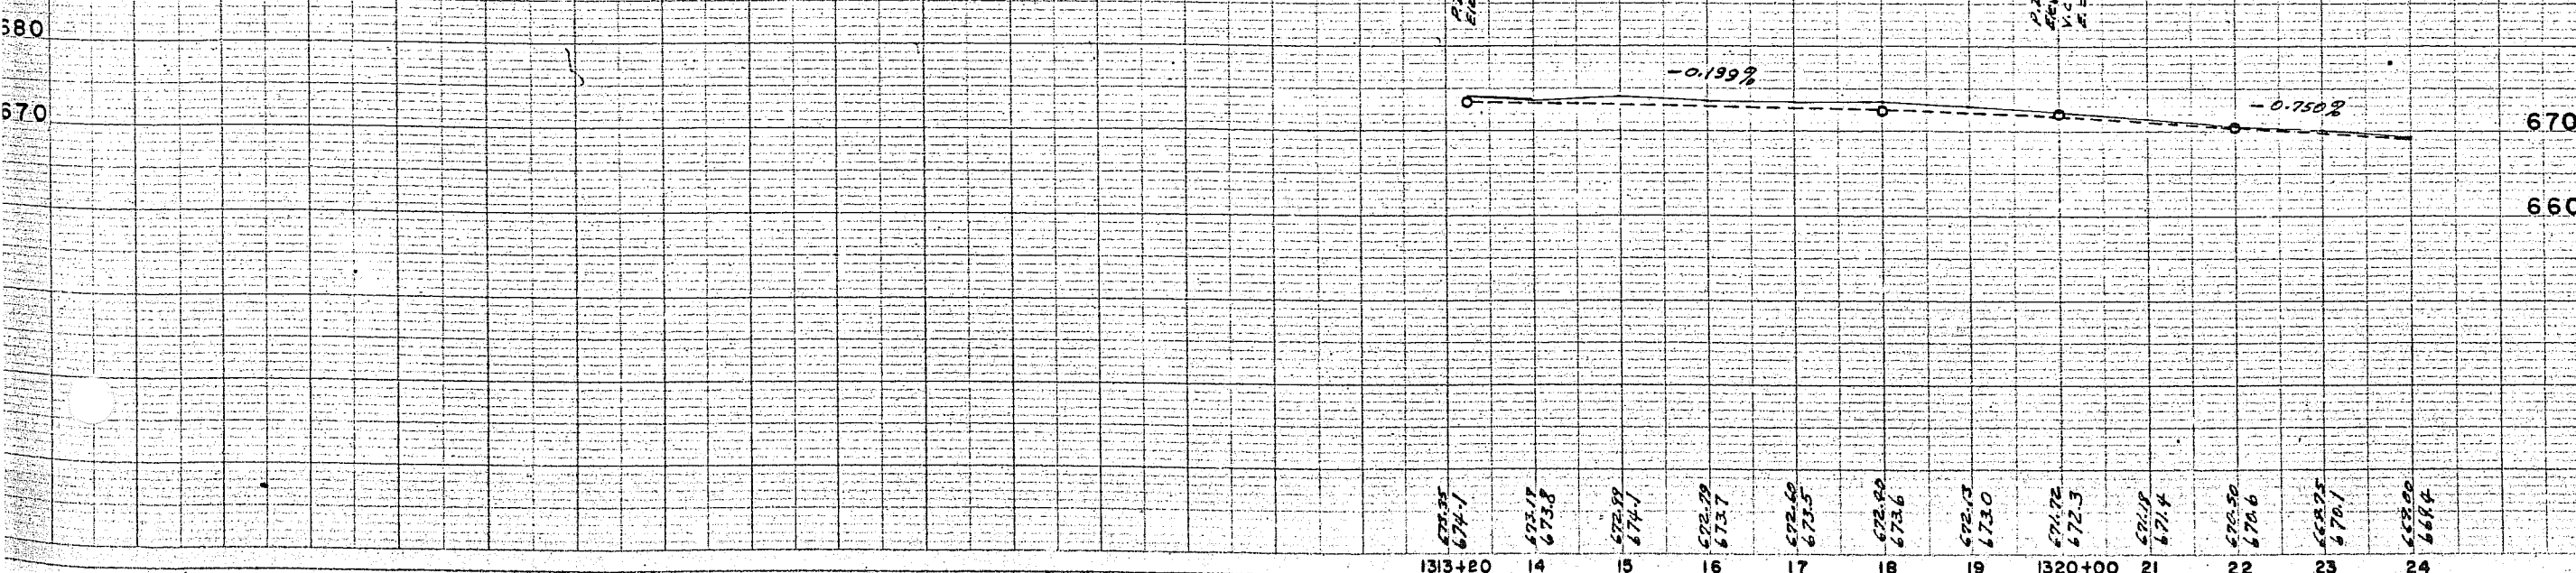 680
670
Elev
V.C.
E.=
-0.199%
-0.750%
670
660
673.35
674.1
673.19
673.8
672.99
674.1
672.79
673.7
672.60
673.5
672.40
673.6
672.13
673.0
671.72
672.3
671.18
671.4
670.50
670.6
669.75
670.1
669.00
669.4
1313+20 14 15 16 17 18 19 1320+00 21 22 23 24